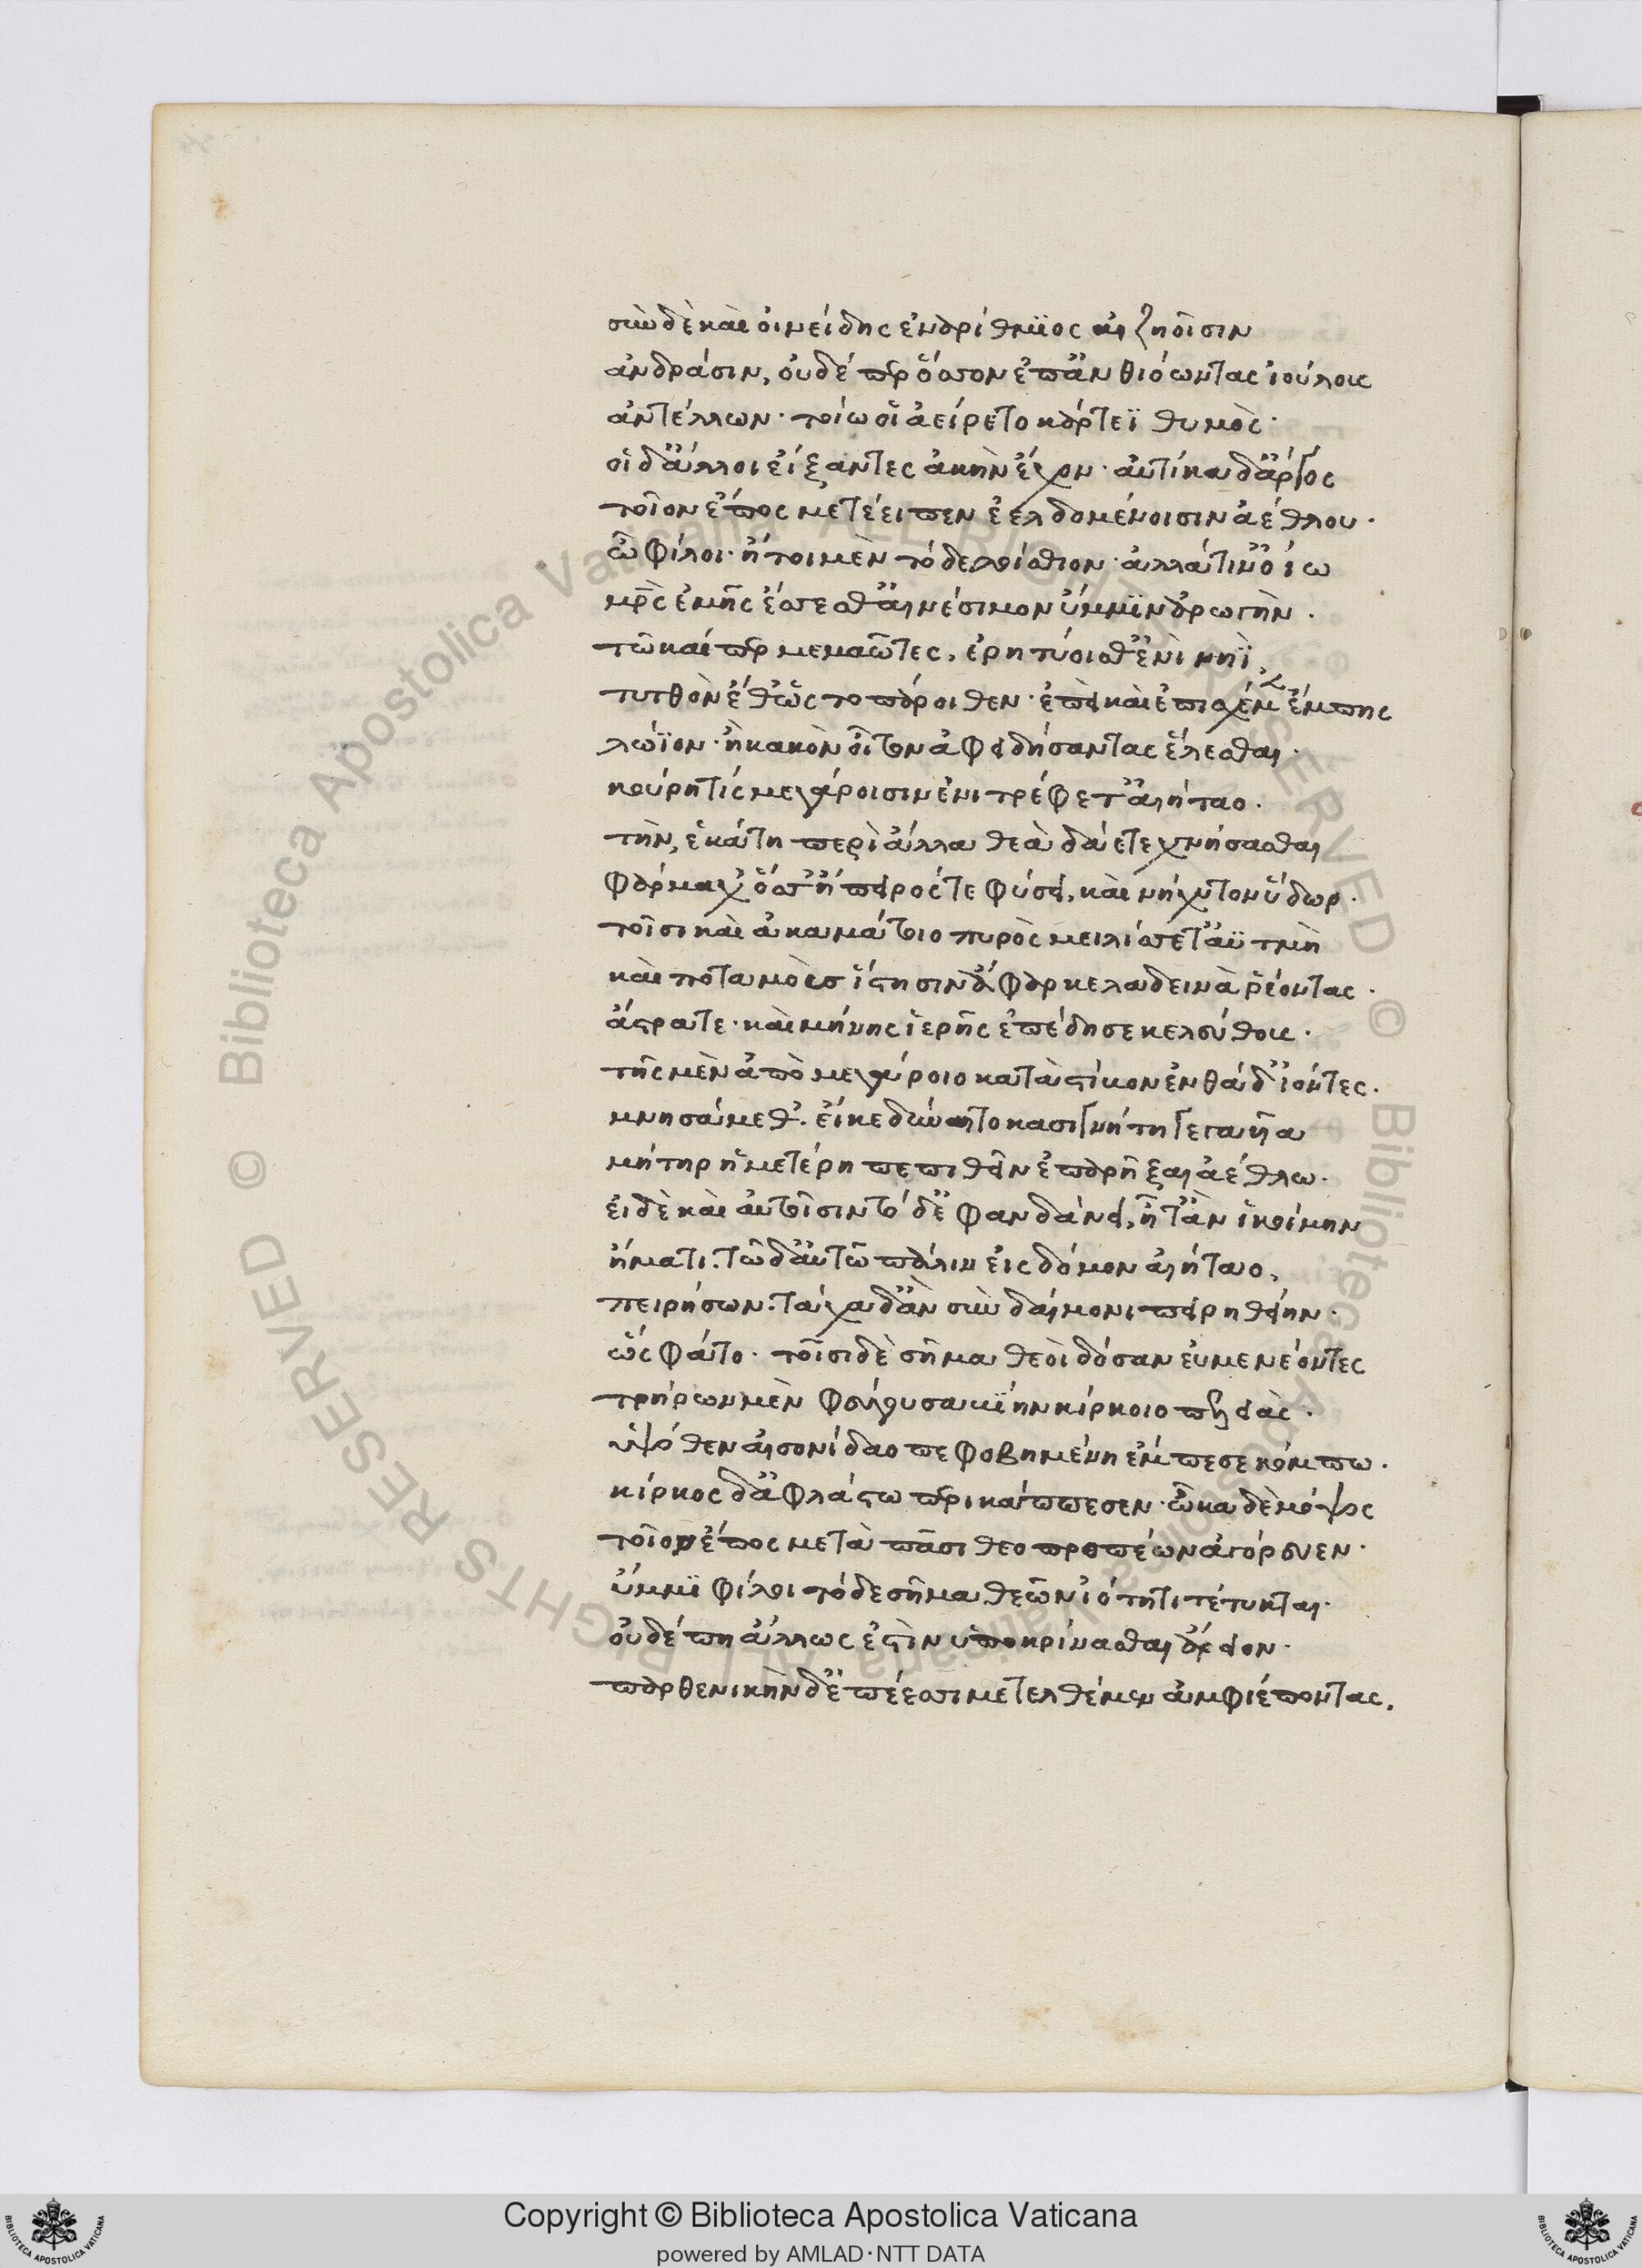 σὺν δὲ καὶ οἰνείδης ἐναρίθμϊος αἰζηοῖσιν
ἀνδράσιν, οὐδέ περ ὅσσον ἐπανθιόωντας ἰούλους
ἀντέλλων· τοίω οἷ ἀείρετο κάρτεϊ θυμὸς·
οἱ δ' ἄλλοι εἴξαντες ἀκὴν ἔχον· αὐτίκα δ' ἄργος
τοῖον ἔπος μετέειπεν ἐελδομένοισιν ἀέθλου·
ὦ φίλοι· ἤτοι μὲν τόδε λοίσθιον· ἀλλά τιν' οἵω
μρὸς ἐμῆς ἔσσεσθ' αἰνέσιμον ὔμμϊν ἀρωγὴν·
τῶ καί περ μεμαῶτες, ἐρητύοισθ' ἐνὶ νηῒ
τυτθὸν ἔθ' ὡς τοπάροιθεν· ἐπεὶ καὶ ἐπισχέμεν ἔμπης
λώϊον· ἢ κακὸν οἶτον ἀφειδήσαντας ἑλέσθαι·
κούρη τίς μεγάροισιν ἐνιτρέφετ' αἰήταο·
τὴν, ἑκάτη περὶ ἄλλα θεὰ δάε τεχνήσασθαι
φάρμαχ' ὅσ' ἤπειρός τε φύει, καὶ νήχυτον ὕδωρ·
τοῖσι καὶ ἀκαμάτοιο πυρὸς μειλίσσετ' ἀϋτμὴ
καὶ ποταμοὺς ἵστησιν ἄφαρ κελαδεινὰ ῥέοντας·
ἄστρα τε· καὶ μήνης ἱερῆς ἐπέδησε κελεύθους·
τῆς μὲν ἀπὸ μεγάροιο κατὰ στίβον ἐνθάδ' ἰόντες·
μνησάμεθ'· εἴ κε δύναιτο κασιγνήτη γεγαυῖα
μήτηρ ἡμετέρη πεπιθεῖν ἐπαρῆξαι ἀέθλω·
εἰ δὲ καὶ αὐτοῖσιν τόδ' ἐφανδάνει, ἦτ' ἂν ἱκοίμην
ἤματι· τῶδ' αὐτῶ πάλιν εἰς δόμον αἰήταο,
πειρήσων· τάχα δ' ἂν σὺν δαίμονι πειρηθείην·
ὣς φάτο· τοῖσι δὲ σῆμα θεοὶ δόσαν εὐμενέοντες
τρήρων μὲν φεύγουσα βίην κίρκοιο πελειὰς·
ὑψόθεν αἰσονίδαο πεφοβημένη ἔμπεσε κόλπω·
κίρκος δ' ἀφλάστω περικάππεσεν· ὦκα δὲ μόψος
τοῖον ἔπος μετὰ πᾶσι θεοπροπέων ἀγόρευεν·
ὔμμϊ φίλοι τόδε σῆμα θεῶν ἰότητι τέτυκται·
οὐδέ πη ἄλλως ἐστὶν ὑποκρίνασθαι ἄρειον·
παρθενικὴν δ' ἐπέεσσι μετελθέμεν ἀμφιέποντας.
Copyright © Biblioteca Apostolica Vaticana
powered by AMLAD·NTT DATA